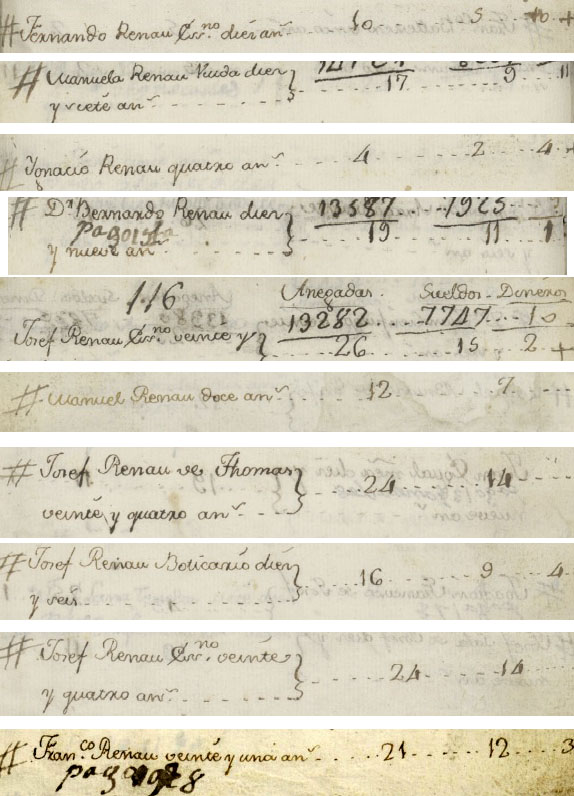 # Fernando Renau Ess.no dies an.s 10 5 10
# Manuela Renau Viuda dies 17 9 11
y siete an.s
# Ygnacio Renau quatro an.s 4 2 4
# D.n Bernardo Renau dies 13587 7925
y nueve an.s 19 11 1
116 Anegadas Sueldos Dineros
13282 7747 10
Josef Renau Ess.no veinte y 26 15 2
# Manuel Renau doce an.s 12 7
# Josef Renau de Thomas
veinte y quatro an.s 24 14
# Josef Renau Boticario dies
y seis 16 9 4
# Josef Renau Ess.no veinte
y quatro an.s 24 14
# Fran.co Renau veinte y una an.s 21 12 3